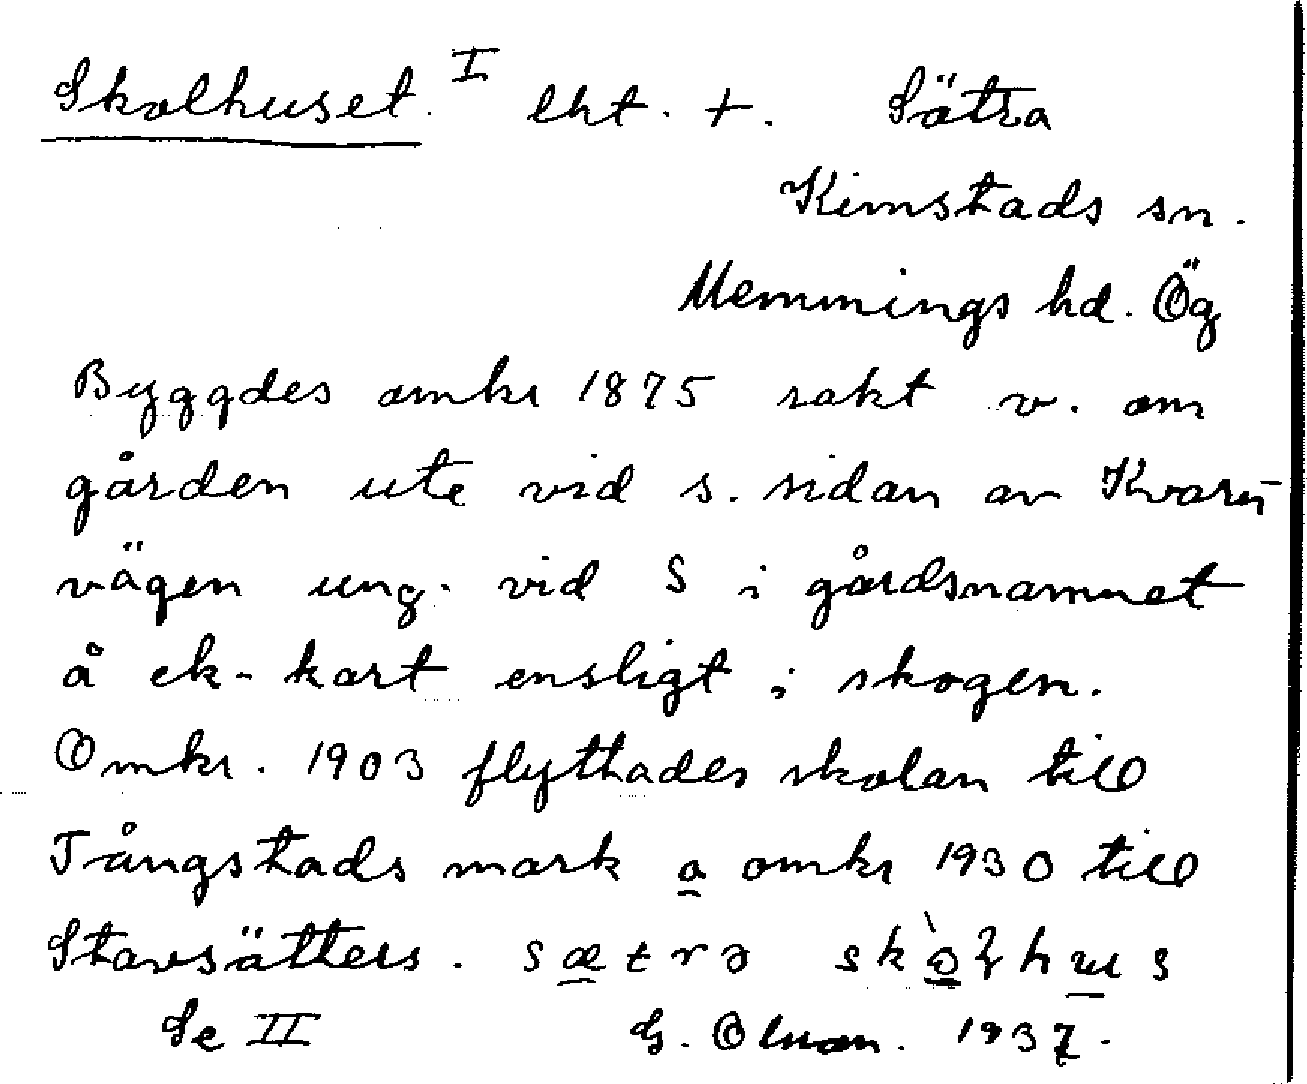 Skolhuset. I lht. +. Sätra
Kimstads sn.
Memmings hd. Ög
Byggdes omkr 1875 rakt v. om
gården ute vid s. sidan av Kvarn-
vägen ung. vid S i gårdsnamnet
å ek-kart ensligt i skogen.
Omkr. 1903 flyttades skolan till
Tångstads mark o omkr 1930 till
Stavsätters. sætrə
Se II G. Olson. 1937.